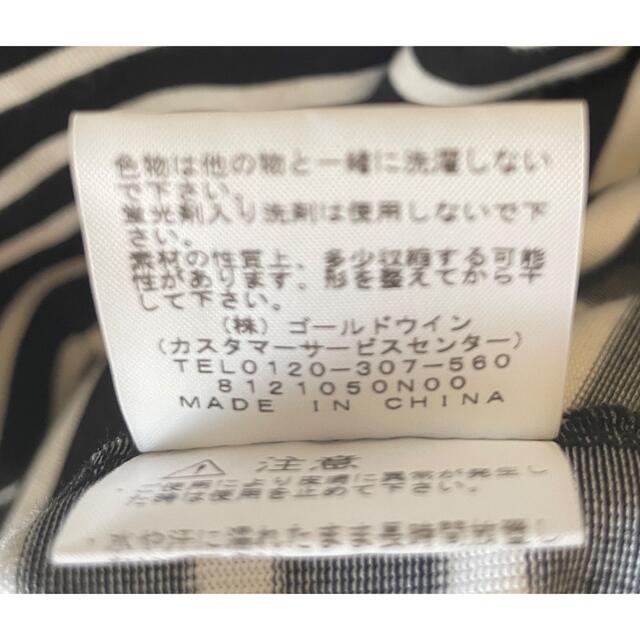 色物は他の物と一緒に洗濯しない
で下さい。
蛍光剤入り洗剤は使用しないで下
さい。
素材の性質上、多少収縮する可能
性があります。形を整えてから干
して下さい。
(株)ゴールドウイン
(カスタマーサービスセンター)
TEL0120-307-560
8121050N00
MADE IN CHINA
⚠注意
・ご使用により皮膚に異常が発生し
た時は使用を止めて下さい。
・水や汗に濡れたまま長時間放置し